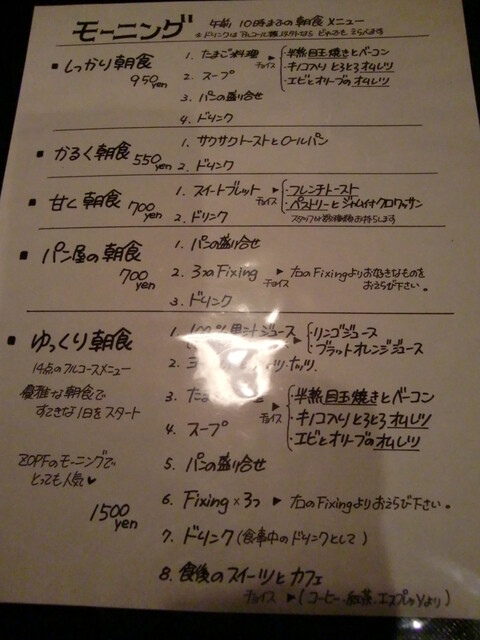 モーニング 午前10時までの朝食メニュー
※ドリンクはアルコール類以外なら どれでも えらべます
▪ しっかり朝食 950yen
1. たまご料理 チョイス ▶ ・半熟目玉焼きとベーコン
・キノコ入り とろとろオムレツ
・エビとオリーブのオムレツ
2. スープ
3. パンの盛り合せ
4. ドリンク
▪ かるく朝食 550yen
1. サクサクトーストとロールパン
2. ドリンク
▪ 甘く朝食 700yen
1. スイートブレット チョイス ▶ ・フレンチトースト
・ペストリーとジャム付クロワッサン
2. ドリンク
▪ パン屋の朝食 700yen
1. パンの盛り合せ
2. 3つのFixing チョイス ▶ 右のFixingよりお好きなものを
おえらび下さい。
3. ドリンク
▪ ゆっくり朝食
14点のフルコースメニュー
優雅な朝食で
すてきな1日をスタート
ZOPFのモーニングで
とっても人気♥
1500yen
1. 100%果汁ジュース ▶ ・リンゴジュース
・ブラットオレンジジュース
2.
3. たまご ▶ ・半熟目玉焼きとベーコン
・キノコ入りとろとろオムレツ
・エビとオリーブのオムレツ
4. スープ
5. パンの盛り合せ
6. Fixing×3つ ▶ 右のFixingよりおえらび下さい。
7. ドリンク(食事中のドリンクとして)
8. 食後のスイーツとカフェ
チョイス ▶ (コーヒー・紅茶・エスプレッソより)